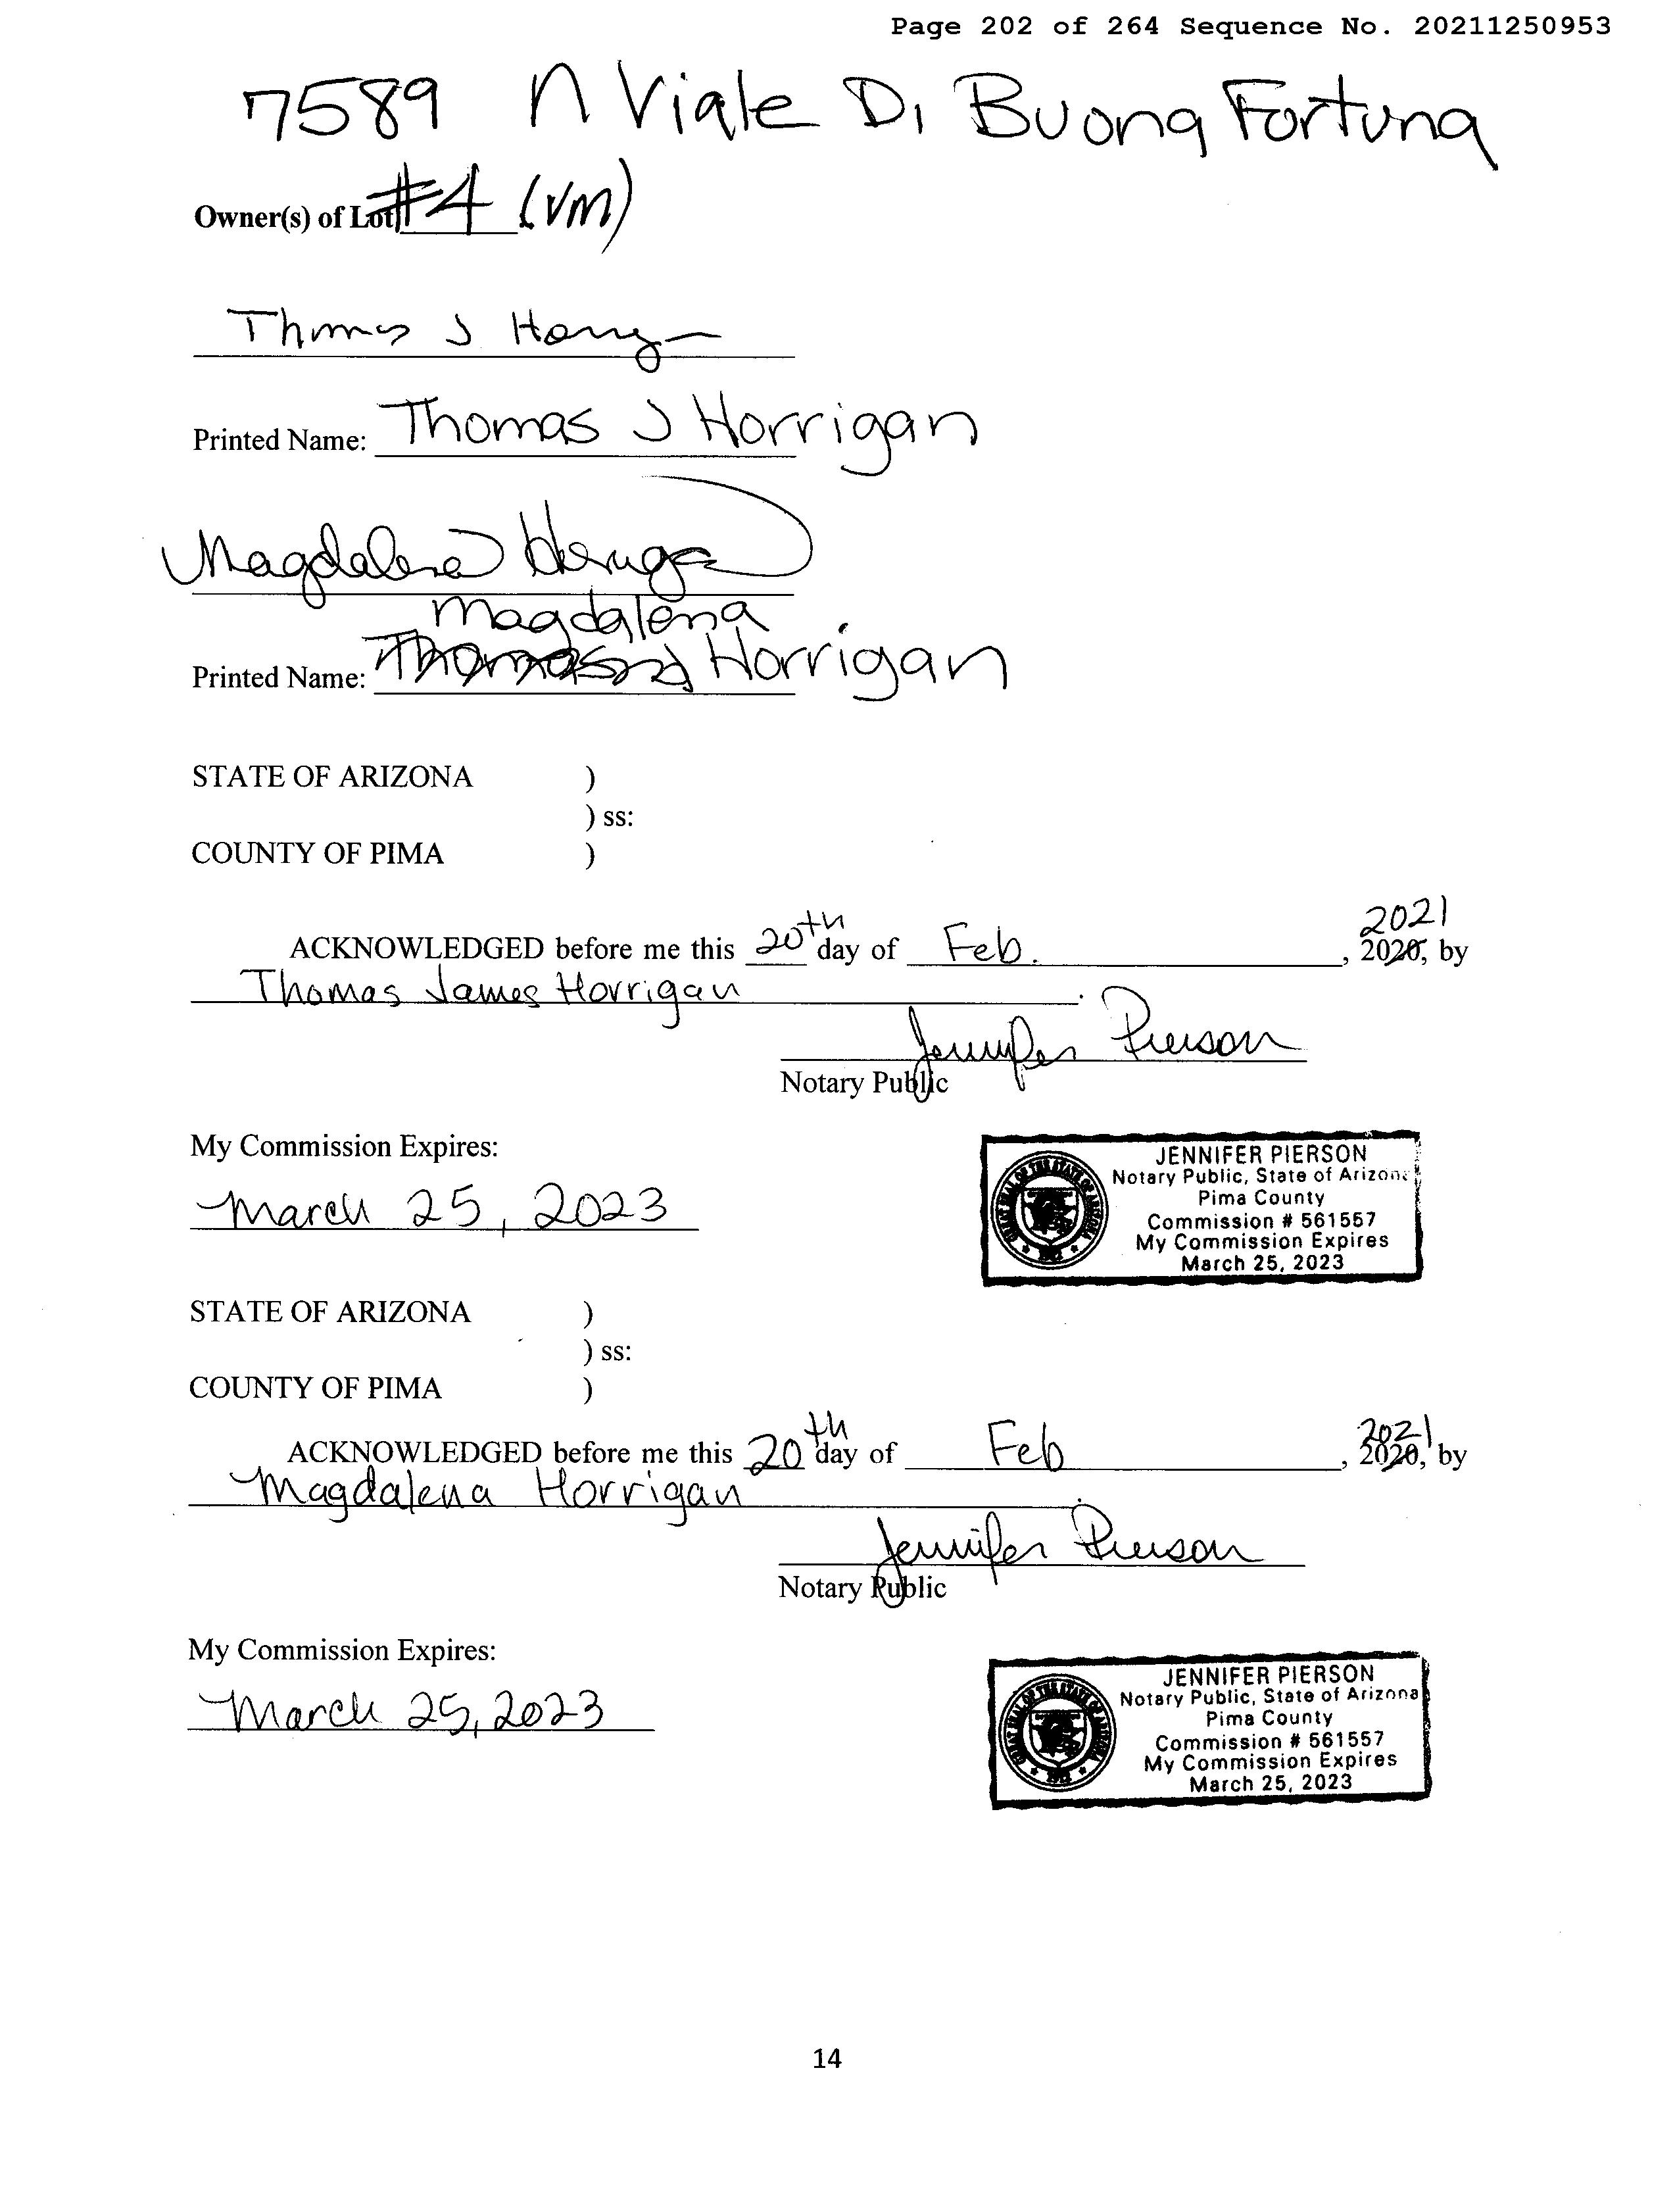 Page 202 of 264 Sequence No. 20211250953
7589 N Viale Di Buona Fortuna
Owner(s) of Lot #4 (VM)
Thomas J Horrigan
Printed Name: Thomas J Horrigan
Magdalena Horrigan
Magdalena
Printed Name: Thomas J Horrigan
STATE OF ARIZONA )
) ss:
COUNTY OF PIMA )
2021
ACKNOWLEDGED before me this 20th day of Feb. , 2020, by
Thomas James Horrigan .
Jennifer Pierson
Notary Public
My Commission Expires:
March 25, 2023
JENNIFER PIERSON
Notary Public, State of Arizona
Pima County
Commission # 561557
My Commission Expires
March 25, 2023
STATE OF ARIZONA )
) ss:
COUNTY OF PIMA )
2021
ACKNOWLEDGED before me this 20th day of Feb , 2020, by
Magdalena Horrigan .
Jennifer Pierson
Notary Public
My Commission Expires:
March 25, 2023
JENNIFER PIERSON
Notary Public, State of Arizona
Pima County
Commission # 561557
My Commission Expires
March 25, 2023
14